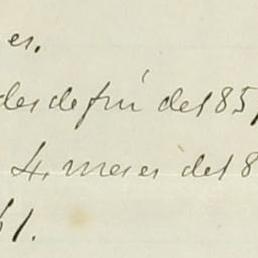 es.
desde fin del 85,
4 meses del 8
61.